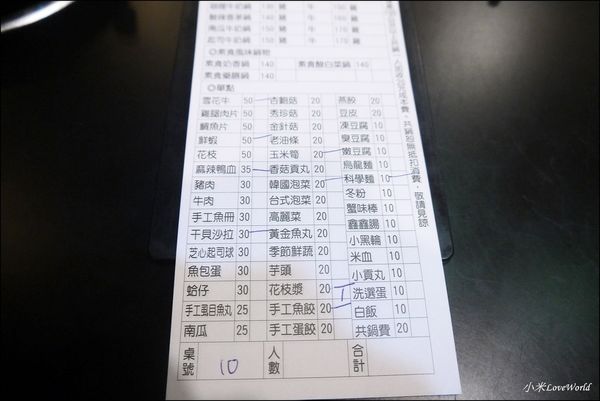 牛奶鍋 130 雞 牛 150 雞
鍋 150 雞 牛 160 雞
南瓜牛奶鍋 150 雞 牛 170 雞
起司牛奶鍋 150 雞 牛 170 雞
◎素食風味鍋物
素食奶香鍋 140 素食酸白菜鍋 140
素食藥膳鍋 140
◎單點
雪花牛 50 杏鮑菇 20 燕餃 20
雞腿肉片 50 秀珍菇 20 豆皮 20
鯛魚片 50 金針菇 20 凍豆腐 10
鮮蝦 50 老油條 20 臭豆腐 10
花枝 50 玉米筍 20 嫩豆腐 10
麻辣鴨血 35 香菇貢丸 20 烏龍麵 10
豬肉 30 韓國泡菜 20 科學麵 10
牛肉 30 台式泡菜 20 冬粉 10
手工魚冊 30 高麗菜 20 蟹味棒 10
干貝沙拉 30 黃金魚丸 20 鑫鑫腸 10
芝心起司球 30 季節鮮蔬 20 小黑輪 10
魚包蛋 30 芋頭 20 米血 10
蛤仔 30 花枝漿 20 小貢丸 10
手工虱目魚丸 25 手工魚餃 20 1 洗選蛋 10
南瓜 25 手工蛋餃 20 白飯 10
共鍋費 20
桌號 10 人數 合計
成本費,共鍋恕無抵扣消費,敬請見諒
小米LoveWorld